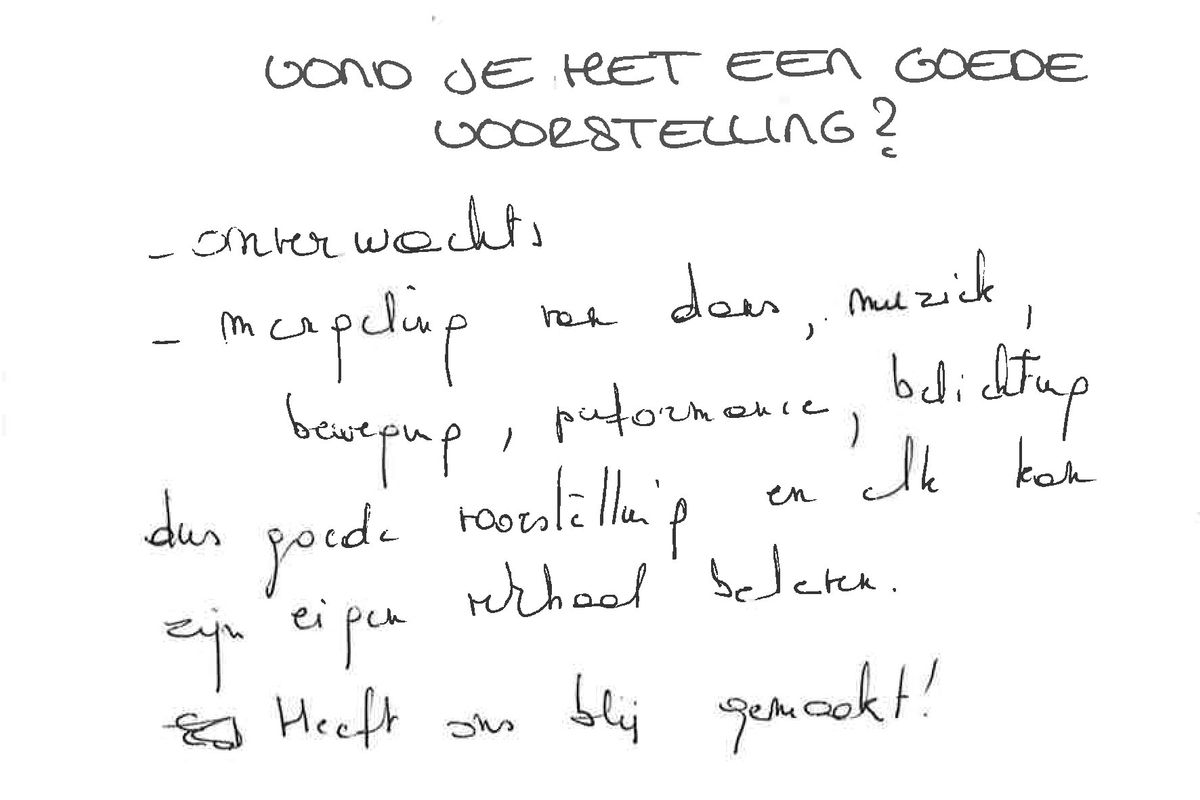 VOND JE HET EEN GOEDE
VOORSTELLING?
- onverwachts
- mengeling van dans, muziek,
beweging, performance, belichting
dus goede voorstelling en elk kan
zijn eigen verhaal beleven.
Heeft ons blij gemaakt!